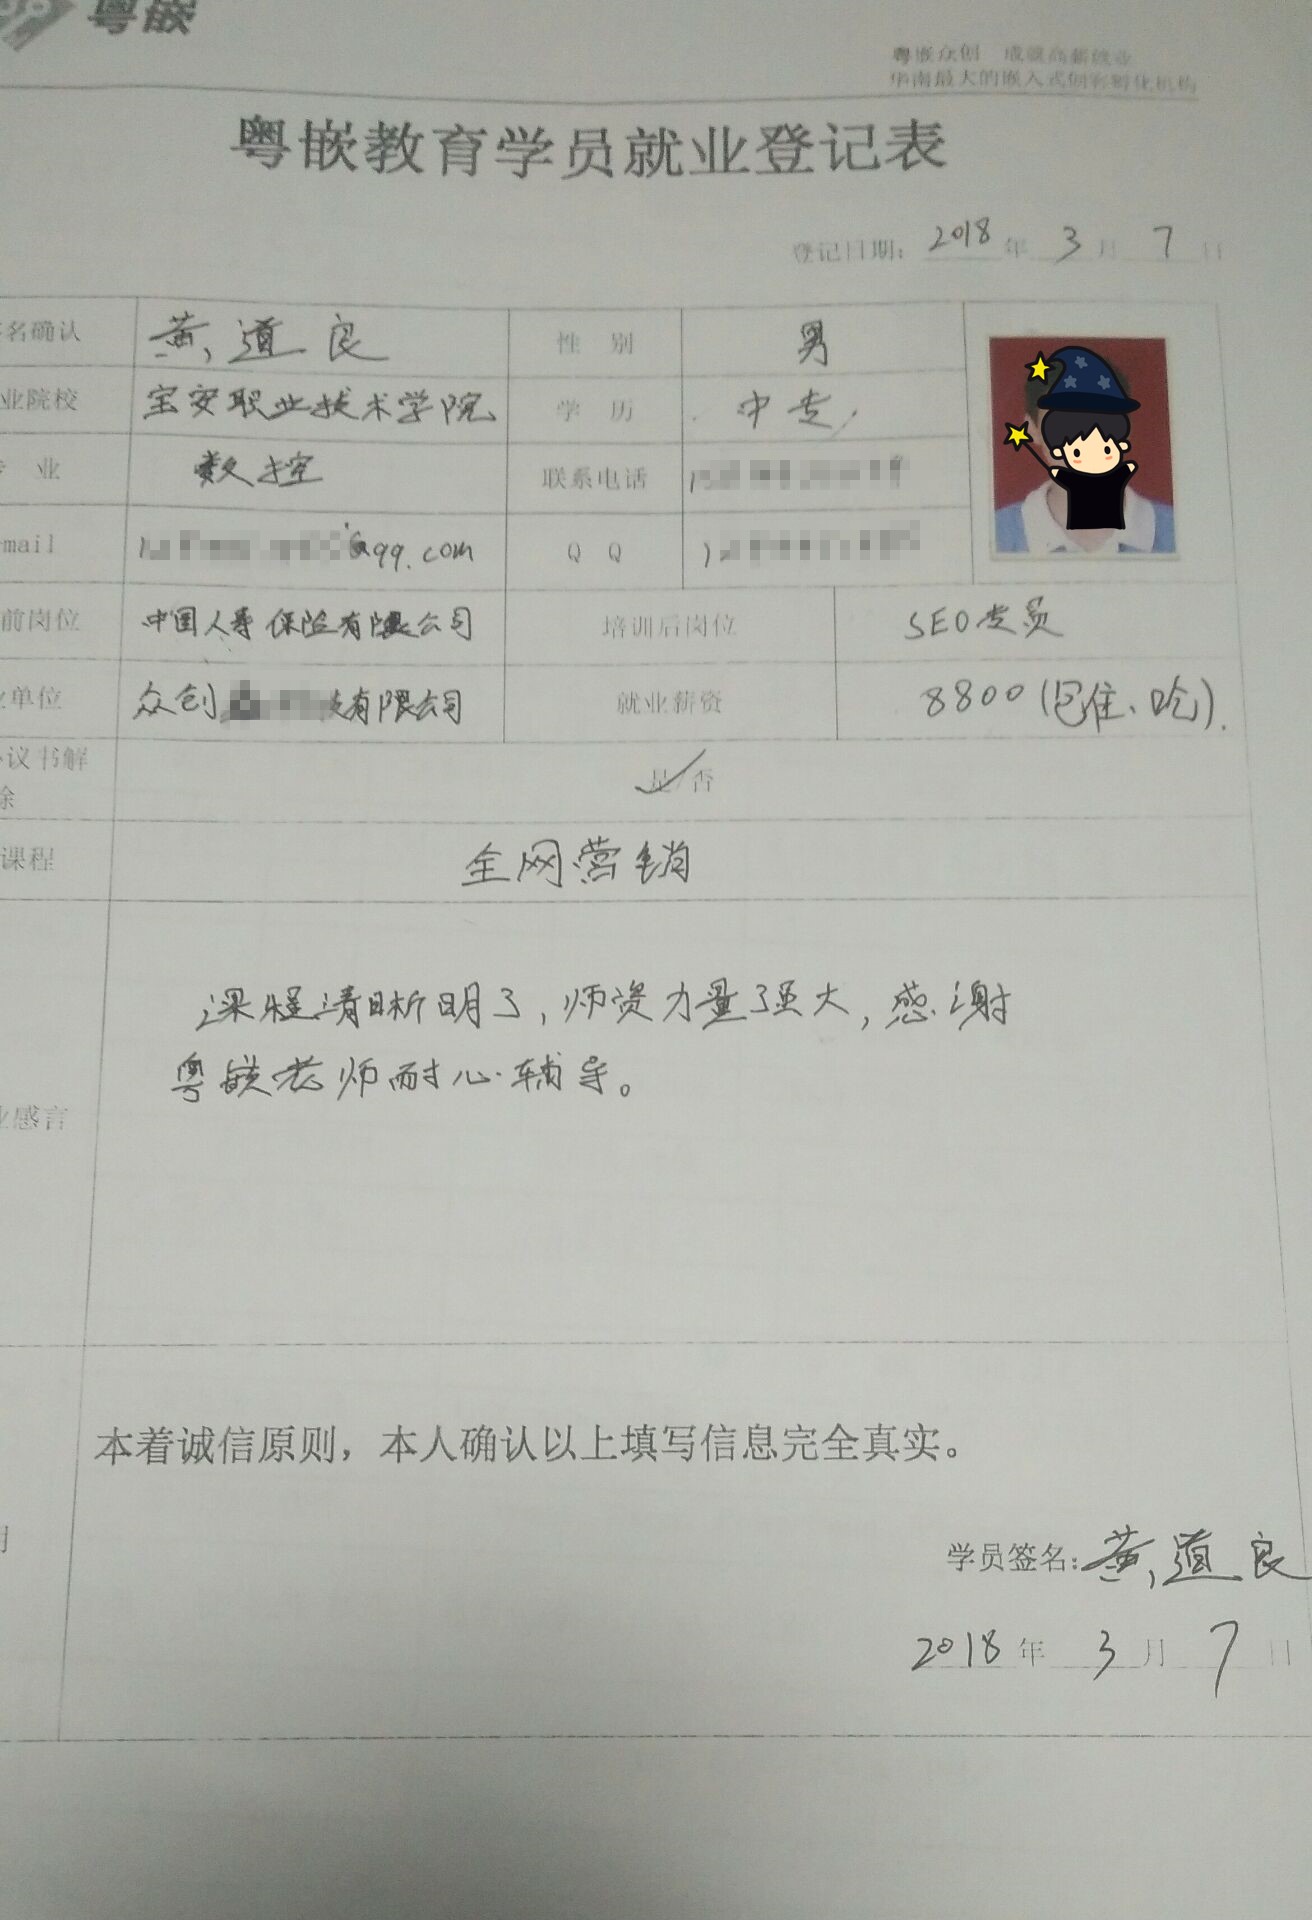 粤嵌
粤嵌众创 成就高薪就业
华南最大的嵌入式创客孵化机构
粤嵌教育学员就业登记表
登记日期：2018年3月7日
名确认 黄道良 性 别 男
业院校 宝安职业技术学院 学 历 中专
业 数控 联系电话
mail @qq.com Q Q
前岗位 中国人寿保险有限公司 培训后岗位 SEO专员
单位 众创 有限公司 就业薪资 8800(包住、吃).
议书解
除 是/否
课程 全网营销
课程清晰明了,师资力量强大,感谢
粤嵌老师耐心辅导。
业感言
本着诚信原则，本人确认以上填写信息完全真实。
学员签名：黄道良
2018年3月7日